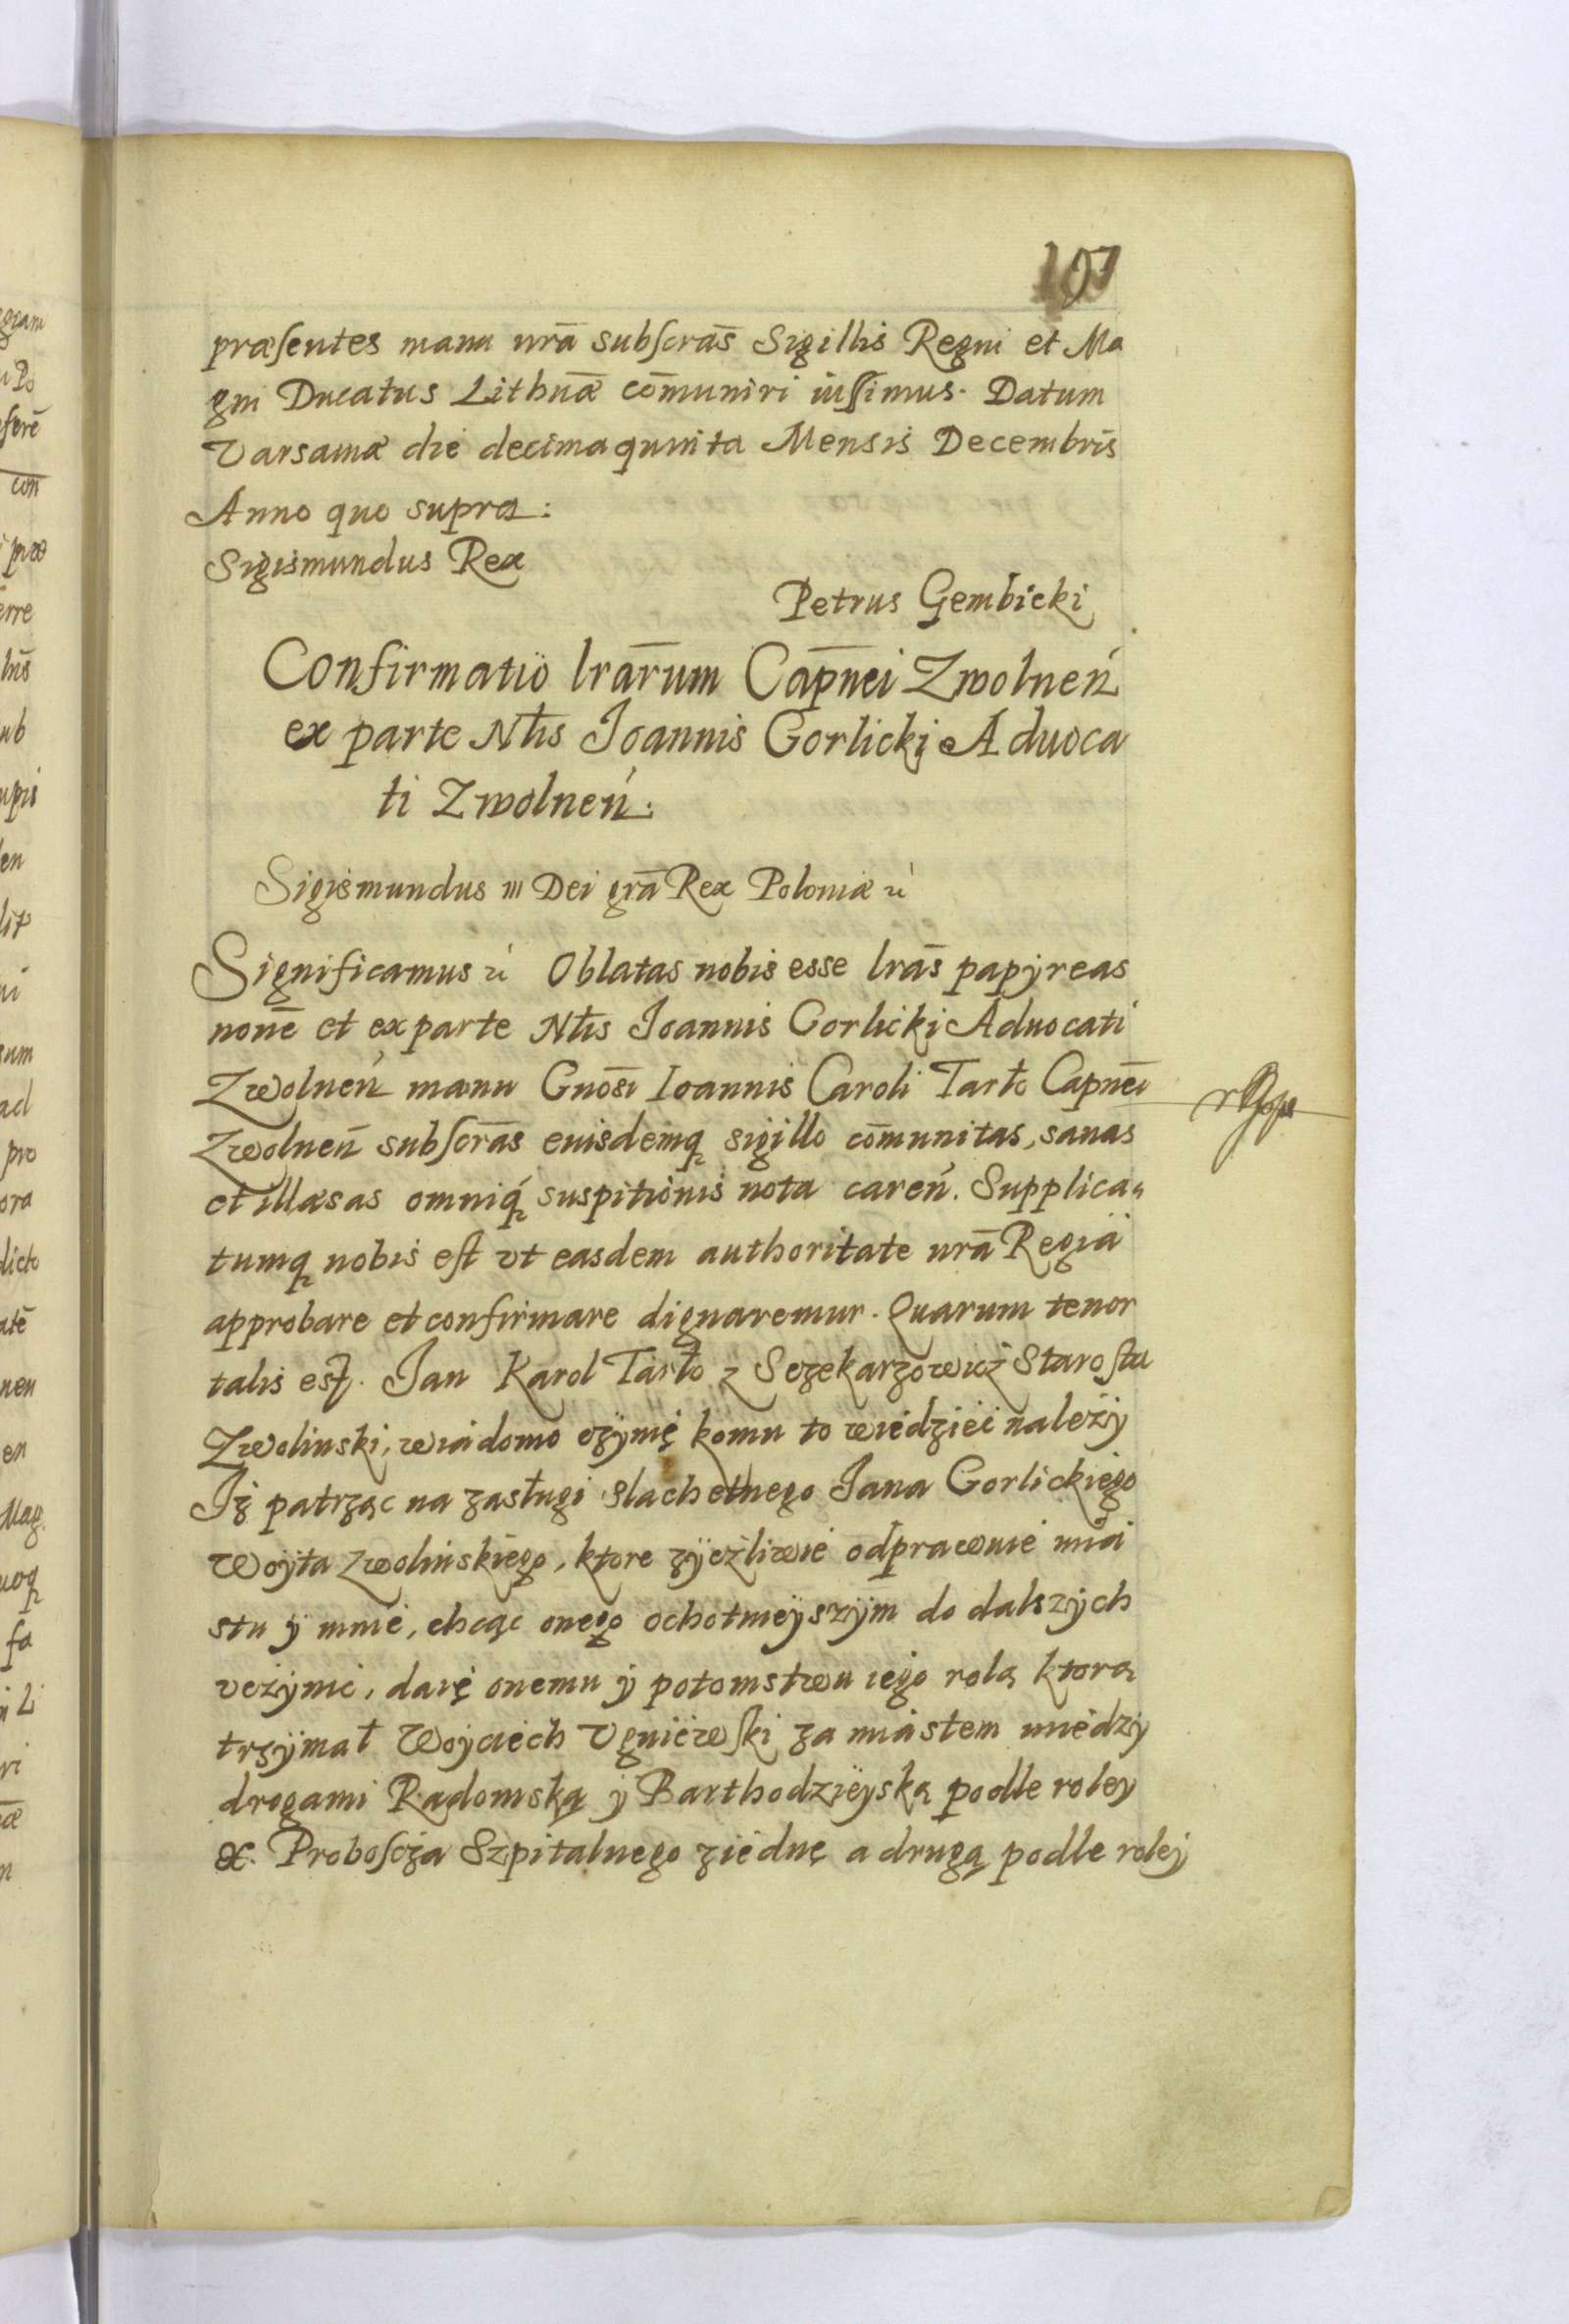 107
præsentes manu nrā subscras̄ Sigillis Regni et Ma
gni Ducatus Lithuāæ com̄uniri iussimus. Datum
Varsauiæ die decima quinta Mensis Decembris
Anno quo supra:
Sigismundus Rex
Petrus Gembicki
Confirmatio lrar̄um Capn̄ei Zwolneń
ex parte Nłis Joannis Gorlicki Aduoca
ti Zwolneń:
Sigismundus III Dei grā Rex Poloniæ
Significamus Oblatas nobis esse lras̄ papyreas
noīe et ex parte Nłis Joannis Gorlicki Aduocati
Zwolneń manu Gnōsi Ioannis Caroli Tarło Capnēi
Zwolneń subscrās eiusdemq sigillo com̄unitas, sanas
et illæsas omniq suspitionis nota careń. Supplica
tumq nobis est vt easdem authoritate nrā Regia
approbare et confirmare dignaremur. Quarum tenor
talis est. Jan Karol Tarło z Sczekarzowicz Starosta
Zwolinski, wiadomo czynię komu to wiedzieć należy
Iż patrząc na zasługi slachetnego Jana Gorlickiego
Woyta Zwolinskiego, ktore zyczliwie odprawuie mia
stu y mnie, chcąc onego ochotnieyszym do dalszych
vczynić, daię onemu y potomstwu iego rolą ktorą
trzymał Woyciech Vgniewski za miastem miedzy
drogami Radomską y Barthodzieyską podle roley
X. Proboscza Szpitalnego ziednę a drugą podle roley